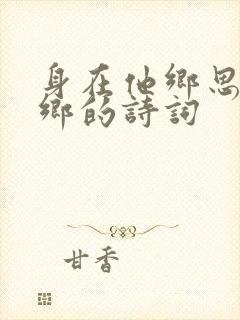 身在他鄉思
鄉的詩詞
甘香